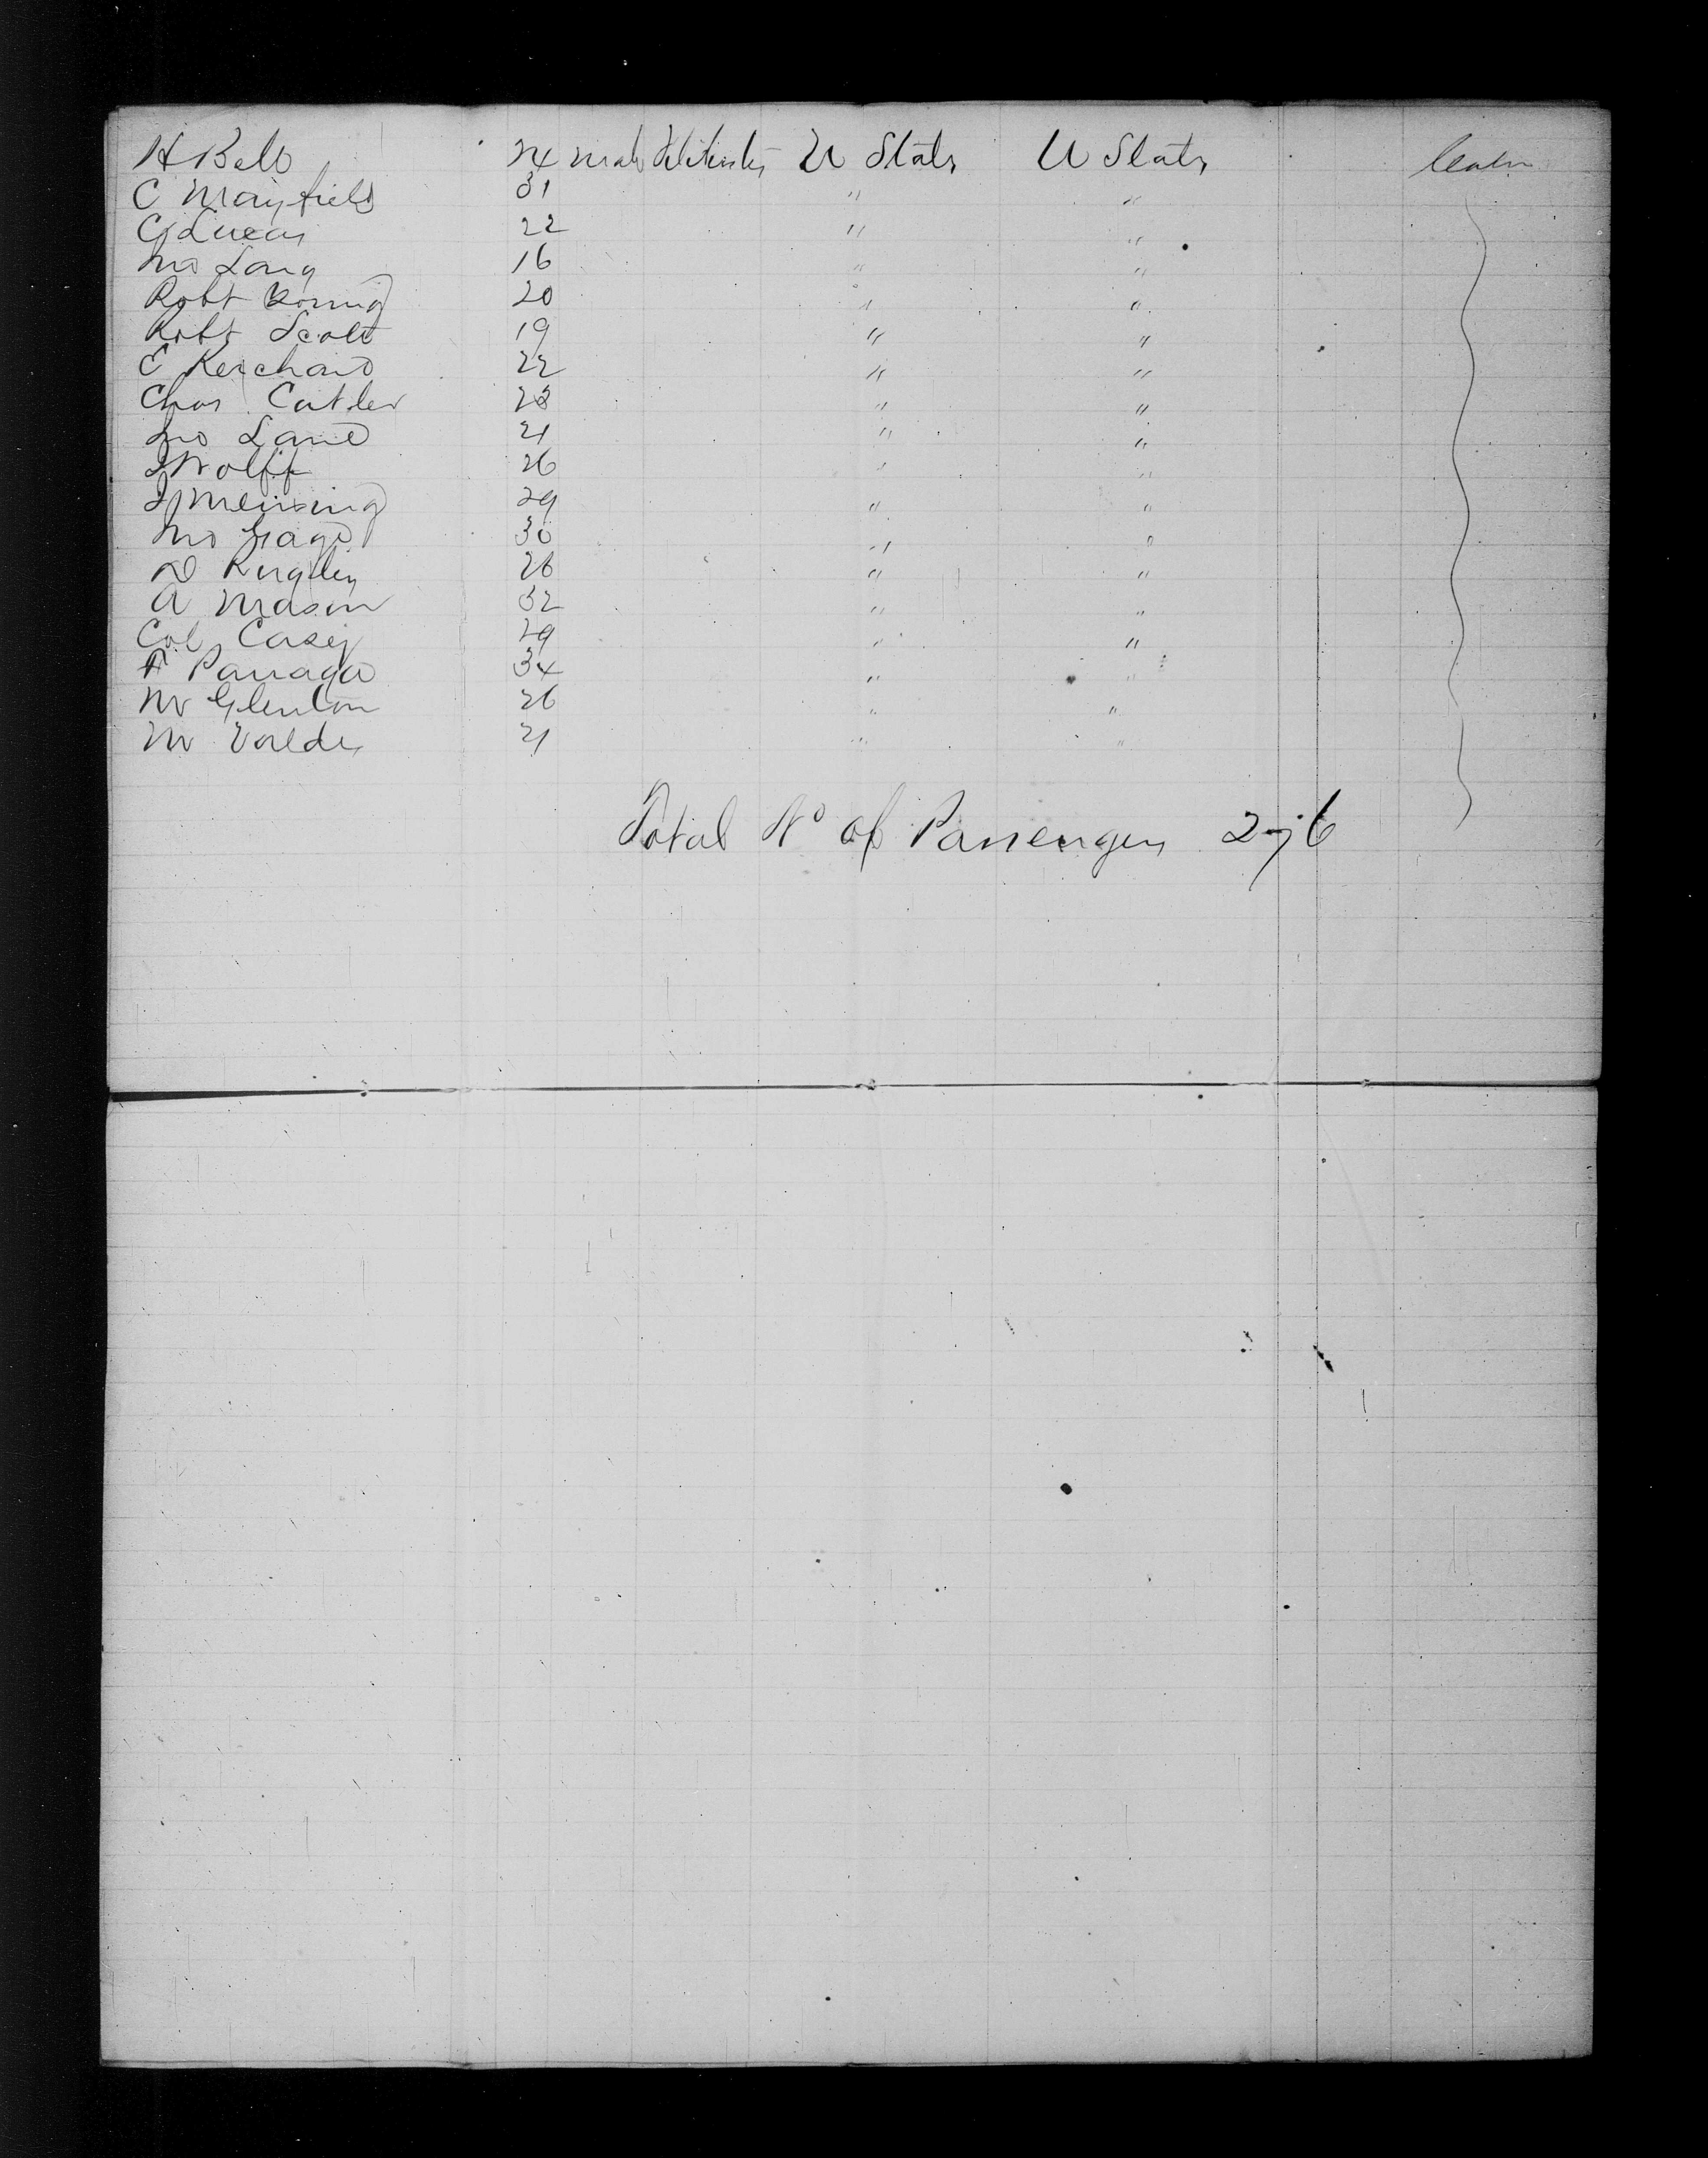 H Bell 24 Male U States U States Cabin
C Mayfield 31 " "
C Lucas 22 " "
Mr Lang 16 " "
Robt 20 " "
Robt Scott 19 " "
E Kerchand 22 " "
Chas Cutler 23 " "
Lane 21 " "
J Wolff 26 " "
29 " "
Mr Gage 30 " "
26 " "
A Mason 32 " "
Col Casey 29 " "
Parraga 34 " "
Mr Glenton 26 " "
Mr Valdes 21 " "
Total No of Passengers 276